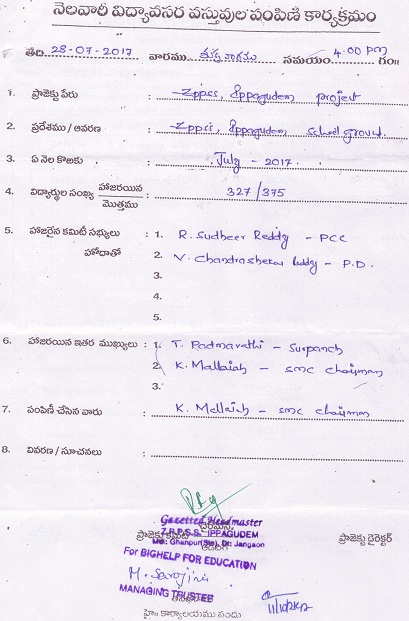 నెలవారీ విద్యావసర వస్తువుల పంపిణి కార్యక్రమం
తేది 28-07-2017 వారము శుక్రవారము సమయం 4.00 pm గం॥
1. ప్రాజెక్టు పేరు : ZPPSS, Ippagudem project
2. ప్రదేశము / ఆవరణ : ZPPSS, Ippagudem school ground.
3. ఏ నెల కొఱకు : July - 2017.
4. విద్యార్థుల సంఖ్య హాజరయిన మొత్తము : 327/375
5. హాజరైన కమిటీ సభ్యులు హోదాతో : 1. R. Sudheer Reddy - PCC
2. V. Chandrashekar Reddy - P.D.
3.
4.
5.
6. హాజరయిన ఇతర ముఖ్యులు : 1. T. Padmavathi - Surpanch
2. K. Mallaiah - SMC Chairman
3.
7. పంపిణీ చేసిన వారు : K. Mallaiah - SMC Chairman
8. వివరణ / సూచనలు :
Gazetted Headmaster
Z.P.P.S.S. IPPAGUDEM
Mdl: Ghanpur(Stn), Dt: Jangaon
ప్రాజెక్టు కమిటి ప్రాజెక్టు డైరెక్టర్
For BIGHELP FOR EDUCATION
M. Sarojini
MANAGING TRUSTEE
హై॥ కార్యాలయము నందు